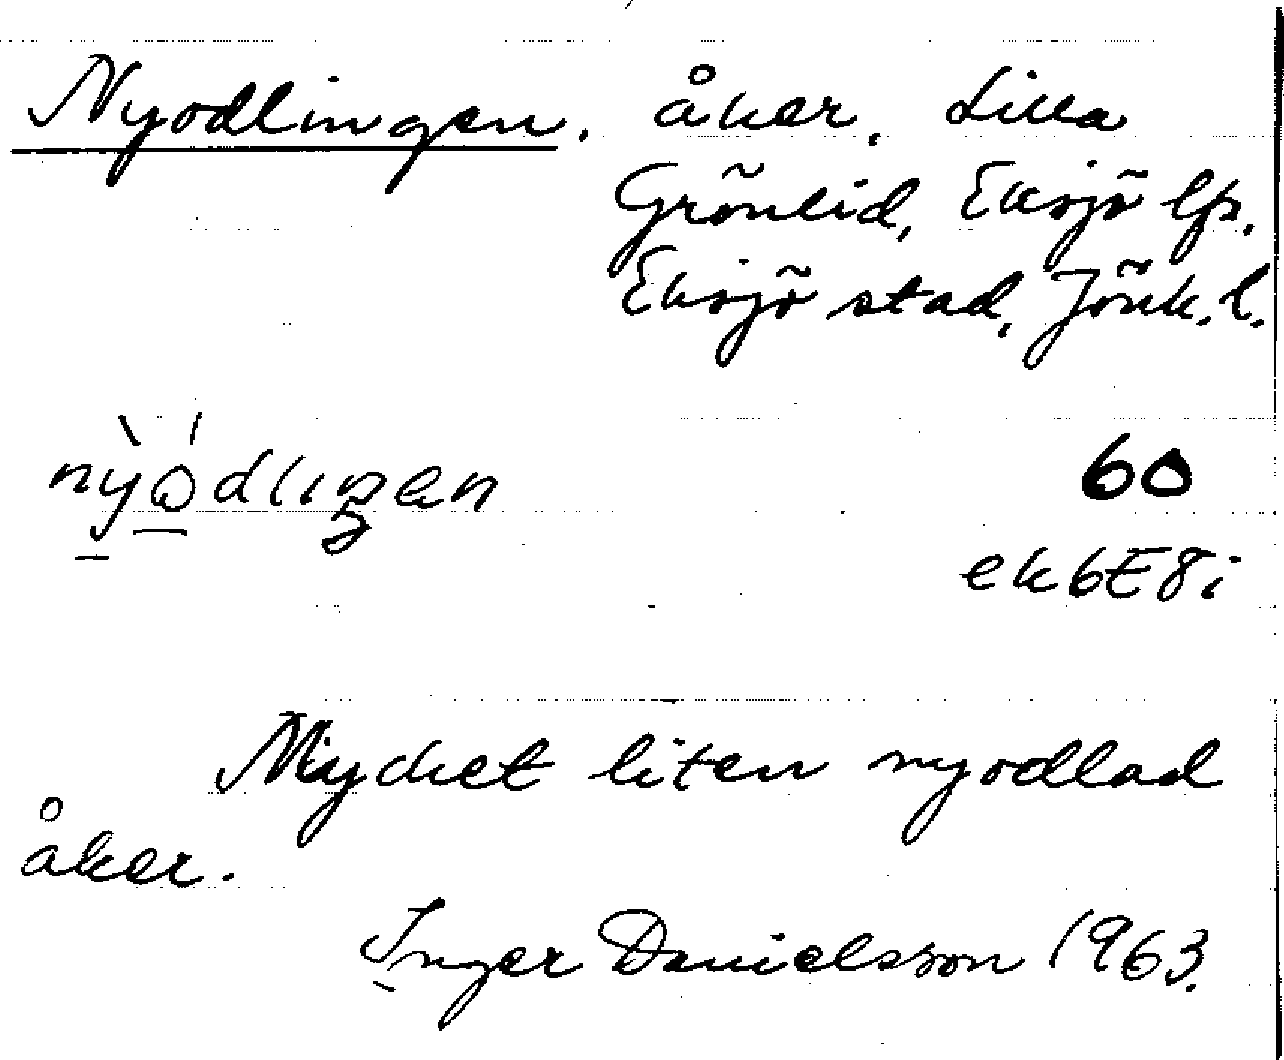 Nyodlingen. åker, Lilla
Grönlid, Eksjö lfs.
Eksjö stad, Jönk. l.
60
ek 6E8i
Mycket liten nyodlad
åker.
Inger Danielsson 1963.